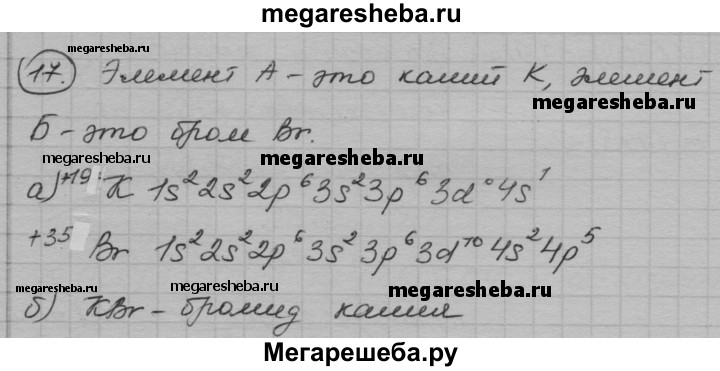 megaresheba.ru
megaresheba.ru
17. Элемент А - это калий K, элемент
megaresheba.ru
Б - это бром Br.
megaresheba.ru
а) +19 K 1s² 2s² 2p⁶ 3s² 3p⁶ 3d⁰ 4s¹
megaresheba.ru
+35 Br 1s² 2s² 2p⁶ 3s² 3p⁶ 3d¹⁰ 4s² 4p⁵
megaresheba.ru
megaresheba.ru
б) KBr - бромид калия
Мегарешеба.ру